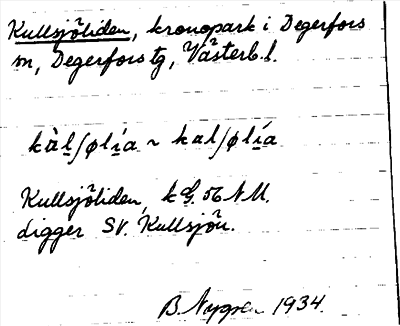 Kullsjöliden, kronopark i Degerfors
sn, Degerfors tg, Västerb. l.
kàlʃøli̱a ~ kalʃølía
Kullsjöliden, kG. 56 NU.
digger SV. Kullsjön.
B. Nygren 1934.